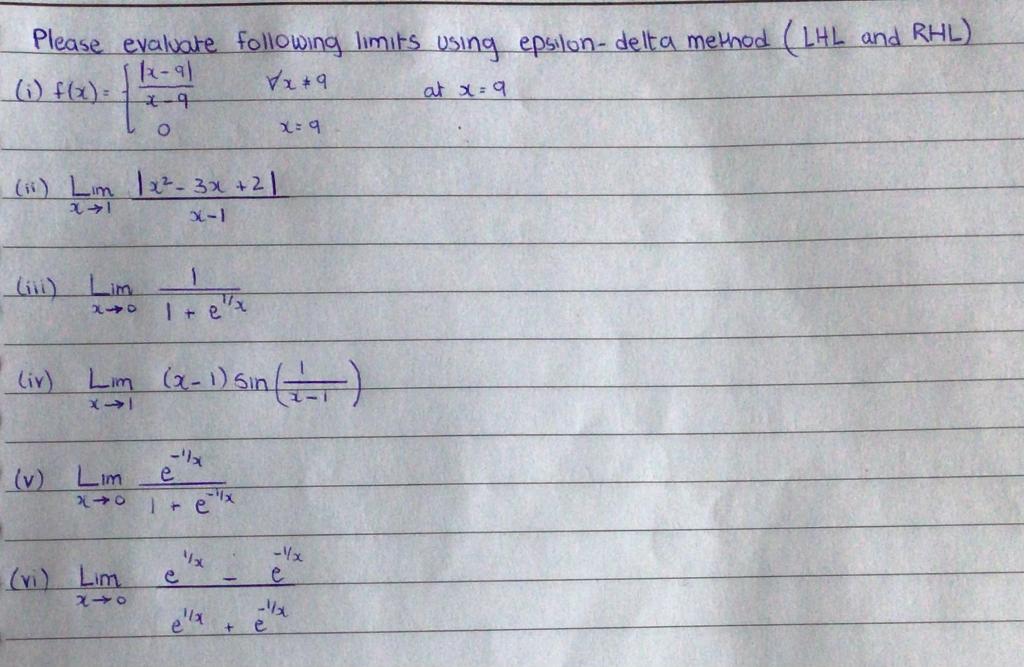 Please evaluate following limits using epsilon-delta method (LHL and RHL)
(i) f(x) = { |x-9| / x-9 ∀x≠9 at x=9
0 x=9
(ii) Lim x→1 |x²-3x+2| / x-1
(iii) Lim x→0 1 / 1 + e^1/x
(iv) Lim x→1 (x-1) sin(1 / x-1)
(v) Lim x→0 e^-1/x / 1 + e^-1/x
(vi) Lim x→0 e^1/x - e^-1/x / e^1/x + e^-1/x